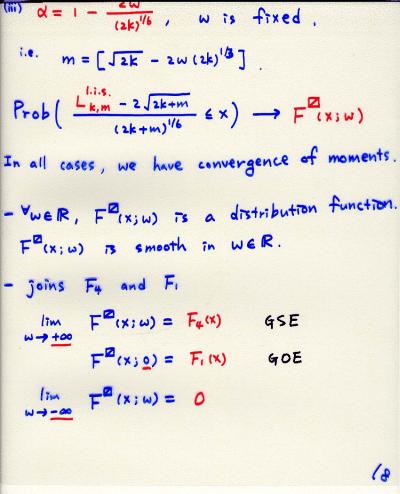 (iii) α = 1 - 2w / (2k)^{1/6} , w is fixed .
i.e. m = [√2k - 2w (2k)^{1/3}] .
Prob( (L_{k,m}^{l.i.s.} - 2√2k+m) / (2k+m)^{1/6} ≤ x ) → F^⍁(x;w)
In all cases, we have convergence of moments.
- ∀w∈ℝ, F^⍁(x;w) is a distribution function.
F^⍁(x;w) is smooth in w∈ℝ.
- joins F₄ and F₁
lim_{w→+∞} F^⍁(x;w) = F₄(x) GSE
F^⍁(x;0) = F₁(x) GOE
lim_{w→-∞} F^⍁(x;w) = 0
18